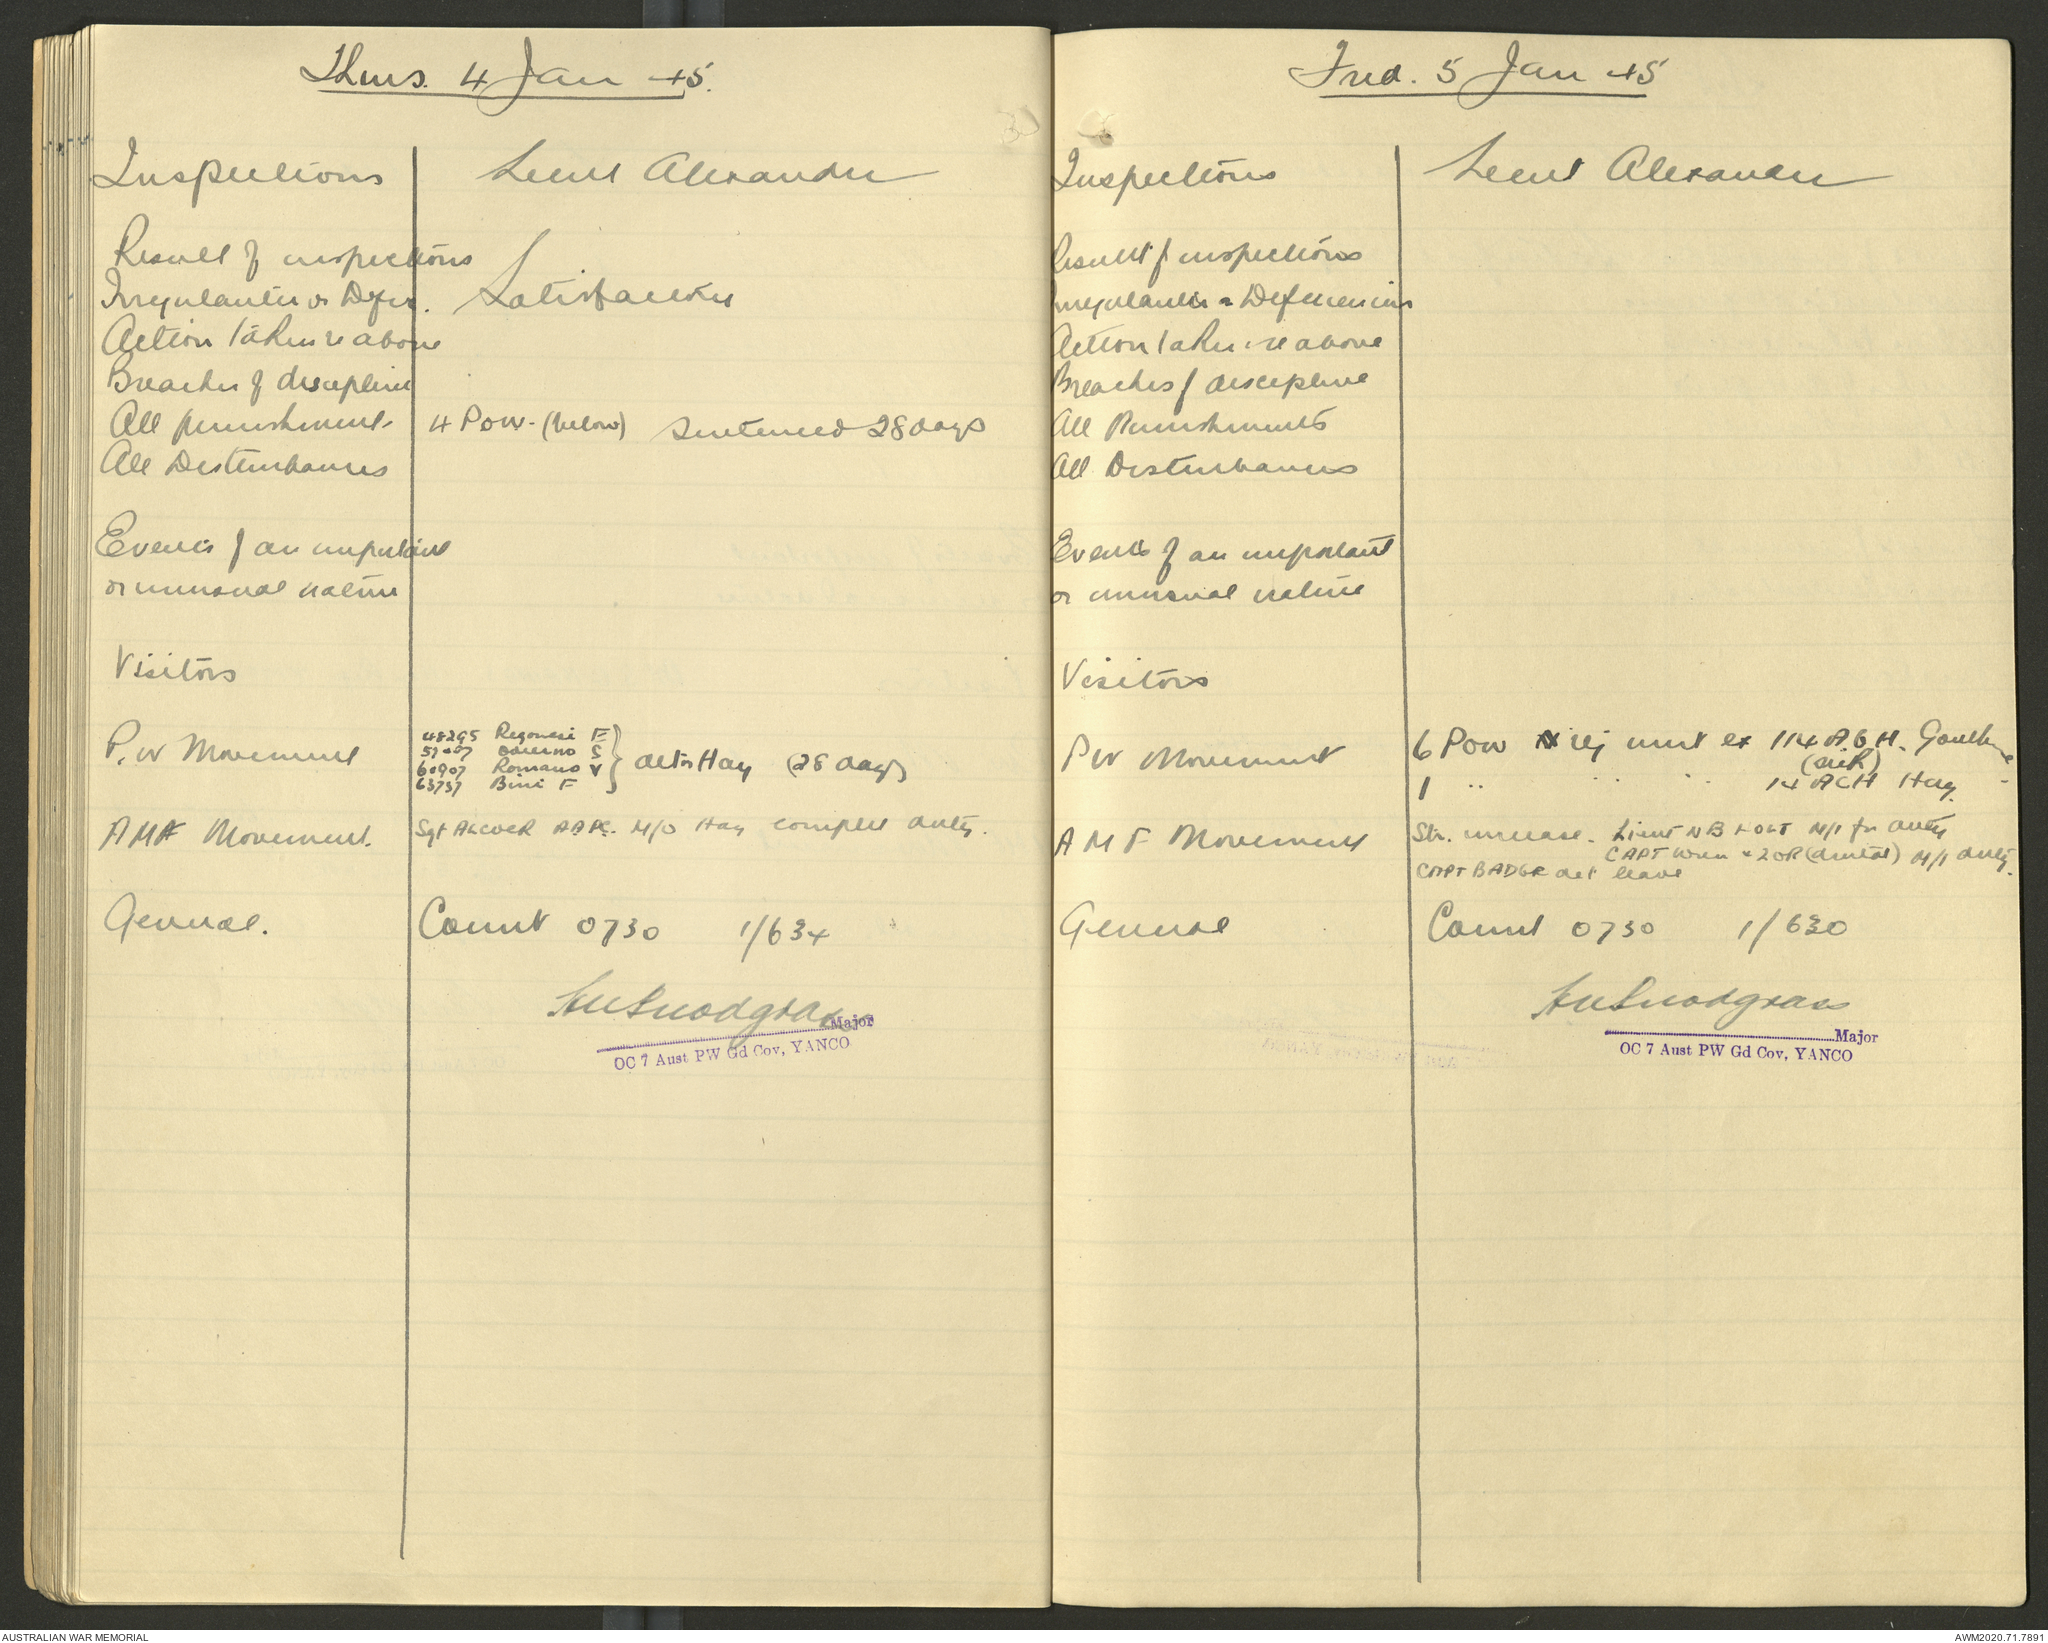 Thurs. 4 Jan 45.
Inspections Lieut Alexander
Result of inspections
Irregularities or Defic. Satisfactory
Action taken re above
Breaches of discipline
All punishments 4 Pow. (below) Sentenced 28 days
All Disturbances
Events of an important
or unusual nature
Visitors
P.W Movement
48295 Regonesi F
S
60907 Romano V
63737 Bini F
det Hay (28 days)
AMF Movement. Sgt ALCOCK AAPC. M/O Hay complet duty.
General. Count 0730 1/634
Snodgrass
Major
OC 7 Aust PW Gd Cov, YANCO
Frid. 5 Jan 45
Inspections Lieut Alexander
Result of inspections
Irregularities or Deficiencies
Action taken re above
Breaches of discipline
All Punishments
All Disturbances
Events of an important
or unusual nature
Visitors
PW Movement 6 POW rej unit ex 114 A.G.H. Goulburn
(sick)
1 " " " 14 ACH Hay.
AMF Movement Str. increase. Lieut N B HOLT M/I for duty
CAPT & 2 OR (dental) M/I duty.
CAPT BADGR det leave
General Count 0730 1/630
Snodgrass
Major
OC 7 Aust PW Gd Cov, YANCO
AUSTRALIAN WAR MEMORIAL
AWM2020.71.7891